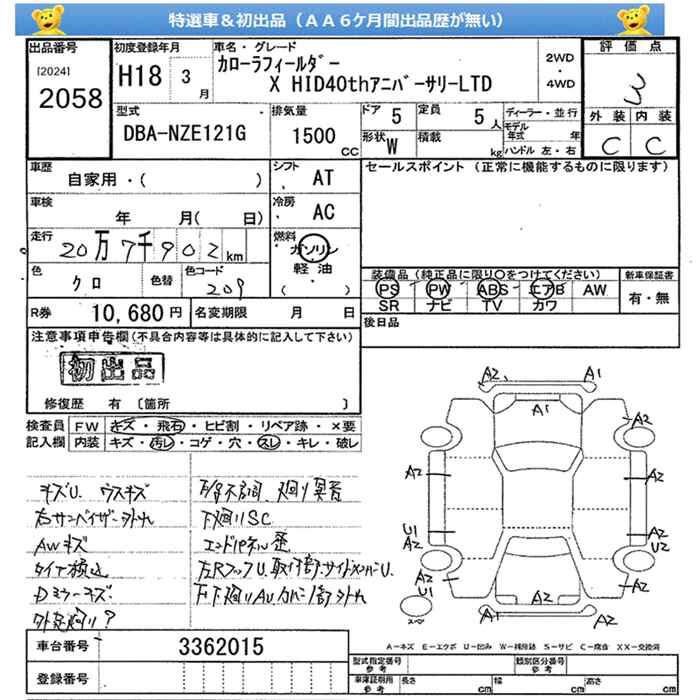 特選車＆初出品（ＡＡ６ケ月間出品歴が無い）
出品番号
[2024]
2058
初度登録年月
H18 3 月
車名・グレード
カローラフィールダー
X HID40thアニバーサリーLTD
2WD
・
4WD
評価点
3
外装 内装
C C
型式
DBA-NZE121G
排気量
1500 CC
ドア 5
定員 5 人
形状 W
積載 kg
ディーラー・並行
モデル年式 年
ハンドル 左・右
車歴
自家用・( )
シフト
AT
セールスポイント（正常に機能するものに限ります）
車検
年 月( 日)
冷房
AC
走行
20万7千902 km
燃料
ガソリン
軽油
( )
色
クロ
色替
色コード
209
装備品（純正品に限り○をつけてください）
PS PW ABS エアB AW
SR ナビ TV カワ
新車保証書
有・無
R券 10,680 円
名変期限 月 日
後日品
注意事項申告欄(不具合内容等は具体的に記入して下さい)
初出品
修復歴 有 〔箇所 〕
検査員記入欄
FW キズ・飛石・ヒビ割・リペア跡・×要
内装 キズ・汚レ・コゲ・穴・スレ・キレ・破レ
キズU. ウスキズ
右サンバイザー外れ
AWキズ
Dミラーキズ
下廻りSC
エンドパネル歪
A2 A1
A1
A2 A2
A2 A2
U1 A2
A2 U2
A2 U1
A2
A2 A2
A1 A2
A－キズ E－エクボ U－凹み W－補修跡 S－サビ C－腐食 XX－交換済
車台番号
3362015
登録番号
型式指定番号
参考
類別区分番号
参考
車庫証明用
参考
長さ cm
幅 cm
高さ cm